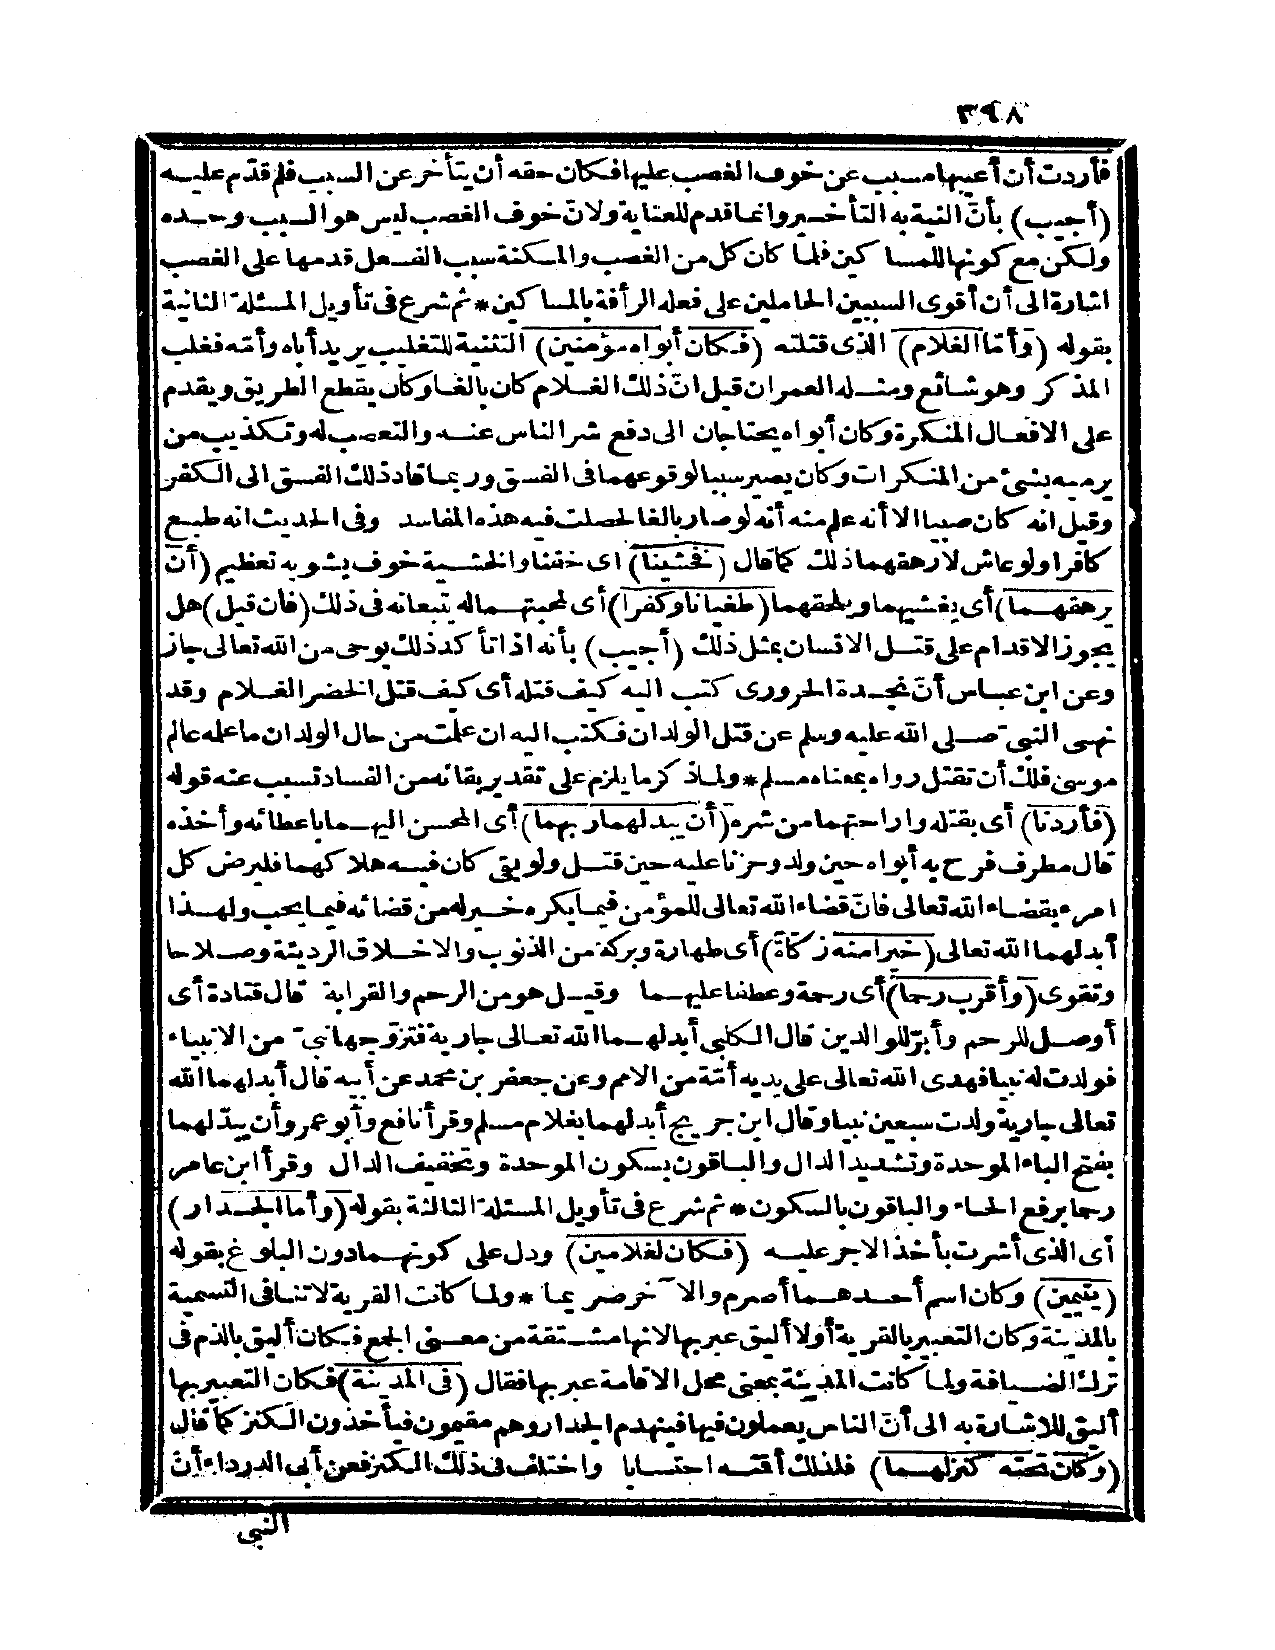 ٣٩٨
فأردت أن أعيبها مسبب عن خوف الغصب عليها فكان حقه أن يتأخر عن السبب فلم قدّم عليه
(أجيب) بأنّ النية به التأخير وانما قدم للعناية ولانّ خوف الغصب ليس هو السبب وحده
ولكن مع كونها للمساكين فلما كان كل من الغصب والمسكنة سبب الفعل قدمها على الغصب
اشارة الى أن أقوى السببين الحاملين على فعله الرأفة بالمساكين * ثم شرع فى تأويل المسئلة الثانية
بقوله (وأمّا الغلام) الذى قتلته (فكان أبواه مؤمنين) التثنية للتغليب يريد أباه وأمّه فغلب
المذكر وهو شائع ومثله العمران قيل انّ ذلك الغلام كان بالغا وكان يقطع الطريق ويقدم
على الافعال المنكرة وكان أبواه يحتاجان الى دفع شر الناس عنه والتعصب له وتكذيب من
يرميه بشئ من المنكرات وكان يصير سببا لوقوعهما فى الفسق وربما قاد ذلك الفسق الى الكفر
وقيل انه كان صبيا الا أنه علم منه أنه لو صار بالغا لحصلت فيه هذه المفاسد وفى الحديث انه طبع
كافرا ولو عاش لارهقهما ذلك كما قال (فخشينا) اى خفنا والخشية خوف يشوبه تعظيم (أن
يرهقهما) أى يغشيهما ويلحقهما (طغيانا وكفرا) أى لمحبتهما له يتبعانه فى ذلك (فان قيل) هل
يجوز الاقدام على قتل الانسان بمثل ذلك (أجيب) بأنه اذا تأكد ذلك بوحى من الله تعالى جاز
وعن ابن عباس أنّ نجدة الحرورى كتب اليه كيف قتله أى كيف قتل الخضر الغلام وقد
نهى النبىّ صلى الله عليه وسلم عن قتل الولدان فكتب اليه ان علمت من حال الولدان ما علمه عالم
موسى فلك أن تقتل رواه بمعناه مسلم * ولما ذكر ما يلزم على تقدير بقائه من الفساد تسبب عنه قوله
(فأردنا) أى بقتله واراحتهما من شره (أن يبدلهما ربهما) أى المحسن اليهما باعطائه وأخذه
قال مطرف فرح به أبواه حين ولد وحزنا عليه حين قتل ولو بقى كان فيه هلاكهما فليرض كل
امرء بقضاء الله تعالى فانّ قضاء الله تعالى للمؤمن فيما يكره خير له من قضائه فيما يحب ولهذا
أبدلهما الله تعالى (خيرا منه زكاة) أى طهارة وبركة من الذنوب والاخلاق الرديئة وصلاحا
وتقوى (وأقرب رحما) أى رحمة وعطفا عليهما وقيل هو من الرحم والقرابة قال قتادة أى
أوصل للرحم وأبرّ للوالدين قال الكلبى أبدلهما الله تعالى جارية فتزوّجها نبىّ من الانبياء
فولدت له نبيا فهدى الله تعالى على يديه أمّة من الامم وعن جعفر بن محمد عن أبيه قال أبدلهما الله
تعالى جارية ولدت سبعين نبيا وقال ابن جريج أبدلهما بغلام مسلم وقرأ نافع وأبو عمرو أن يبدّلهما
بفتح الباء الموحدة وتشديد الدال والباقون بسكون الموحدة وتخفيف الدال وقرأ ابن عامر
رحما برفع الحاء والباقون بالسكون * ثم شرع فى تأويل المسئلة الثالثة بقوله (وأما الجدار)
أى الذى أشرت بأخذ الاجر عليه (فكان لغلامين) ودل على كونهما دون البلوغ بقوله
(يتيمين) وكان اسم أحدهما أصرم والآخر ضريما * ولما كانت القرية لا تنافى التسمية
بالمدينة وكان التعبير بالقرية أولا أليق عبر بها لانها مشتقة من معنى الجمع فكان أليق بالذم فى
ترك الضيافة ولما كانت المدينة بمعنى محل الاقامة عبر بها فقال (فى المدينة) فكان التعبير بها
أليق للاشارة به الى أنّ الناس يعملون فيها فينهدم الجدار وهم مقيمون فيأخذون الكنز كما قال
(وكان تحته كنز لهما) فلذلك أقمته احتسابا واختلف فى ذلك الكنز فعن أبى الدرداء أنّ
النبى